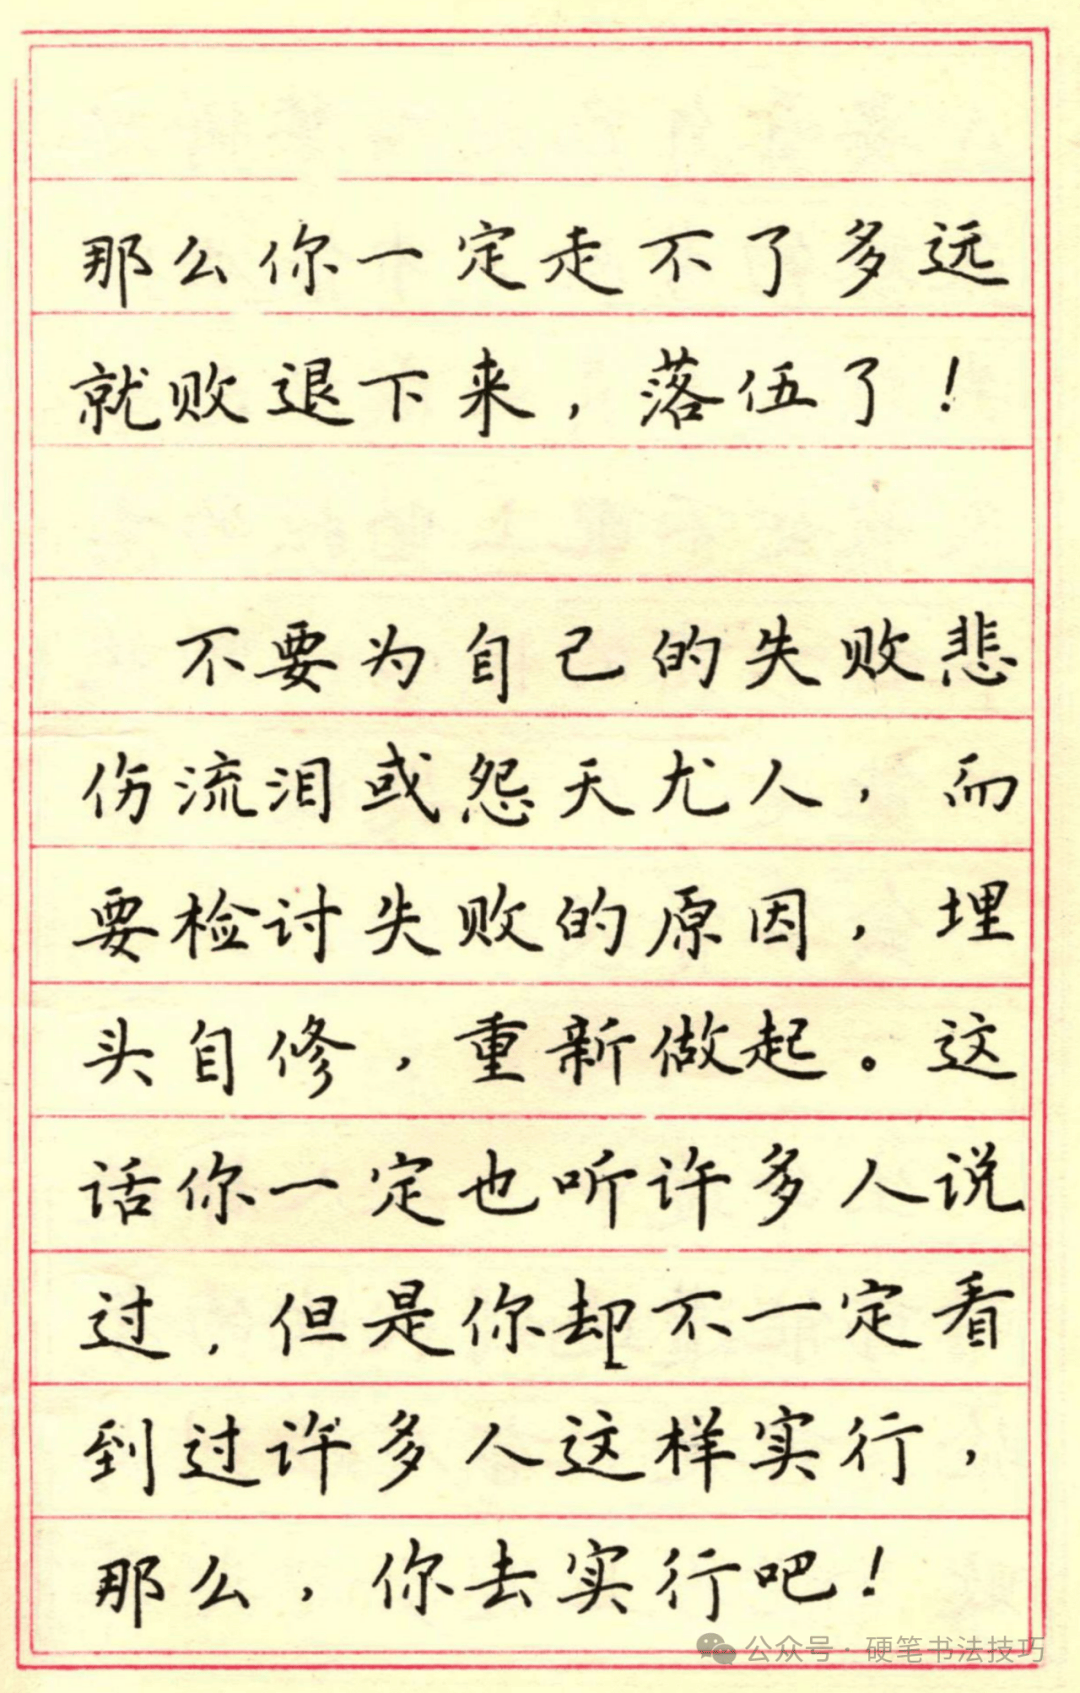 那么你一定走不了多远
就败退下来，落伍了！
不要为自己的失败悲
伤流泪或怨天尤人，而
要检讨失败的原因，埋
头自修，重新做起。这
话你一定也听许多人说
过，但是你却不一定看
到过许多人这样实行，
那么，你去实行吧！
公众号·硬笔书法技巧